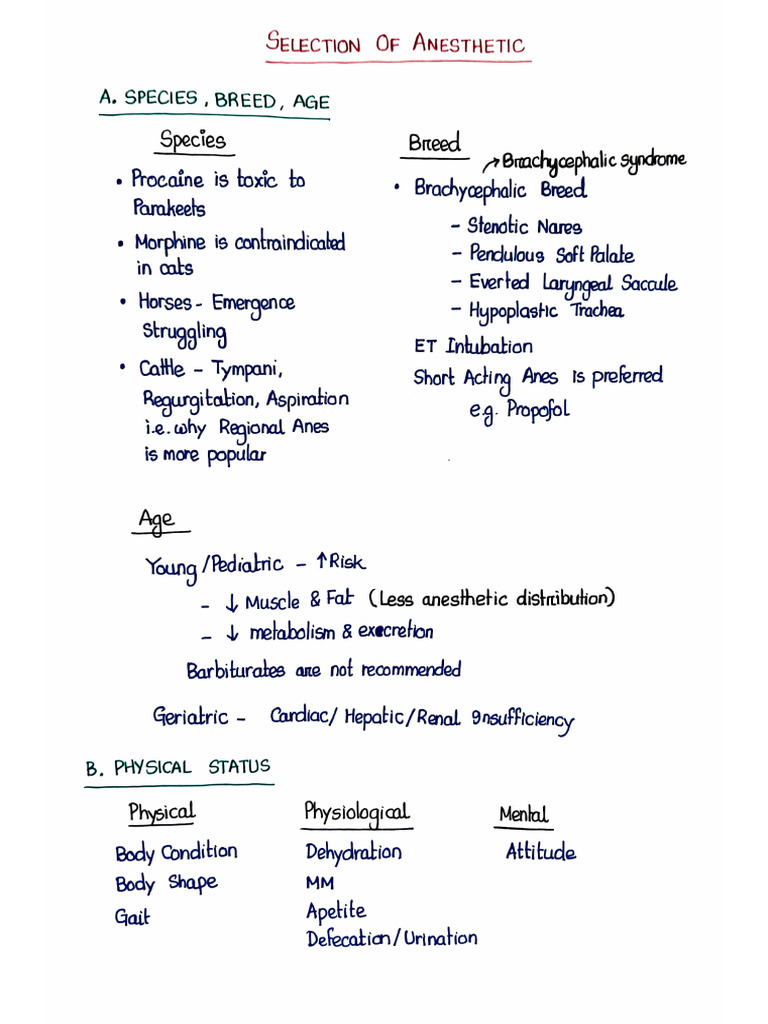 SELECTION OF ANESTHETIC
A. SPECIES, BREED, AGE
Species
• Procaine is toxic to
Parakeets
• Morphine is contraindicated
in cats
• Horses - Emergence
Struggling
• Cattle - Tympani,
Regurgitation, Aspiration
i.e. why Regional Anes
is more popular
Breed
→ Brachycephalic syndrome
• Brachycephalic Breed
- Stenotic Nares
- Pendulous Soft Palate
- Everted Laryngeal Saccule
- Hypoplastic Trachea
ET Intubation
Short Acting Anes is preferred
e.g. Propofol
Age
Young/Pediatric - ↑ Risk
- ↓ Muscle & Fat (Less anesthetic distribution)
- ↓ metabolism & excretion
Barbiturates are not recommended
Geriatric - Cardiac/Hepatic/Renal Insufficiency
B. PHYSICAL STATUS
Physical
Body Condition
Body Shape
Gait
Physiological
Dehydration
MM
Apetite
Defecation/Urination
Mental
Attitude